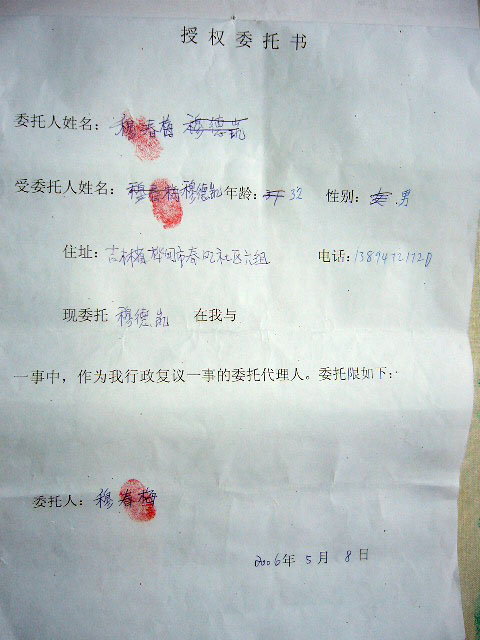 授权委托书
委托人姓名：穆春梅 穆德凯
受委托人姓名：穆春梅 穆德凯 年龄： 32 性别：女 男
住址：吉林省桦甸市春 社区六组 电话：
现委托 穆德凯 在我与
一事中，作为我行政复议一事的委托代理人。委托限如下：
委托人：穆春梅
2006年 5 月 8 日